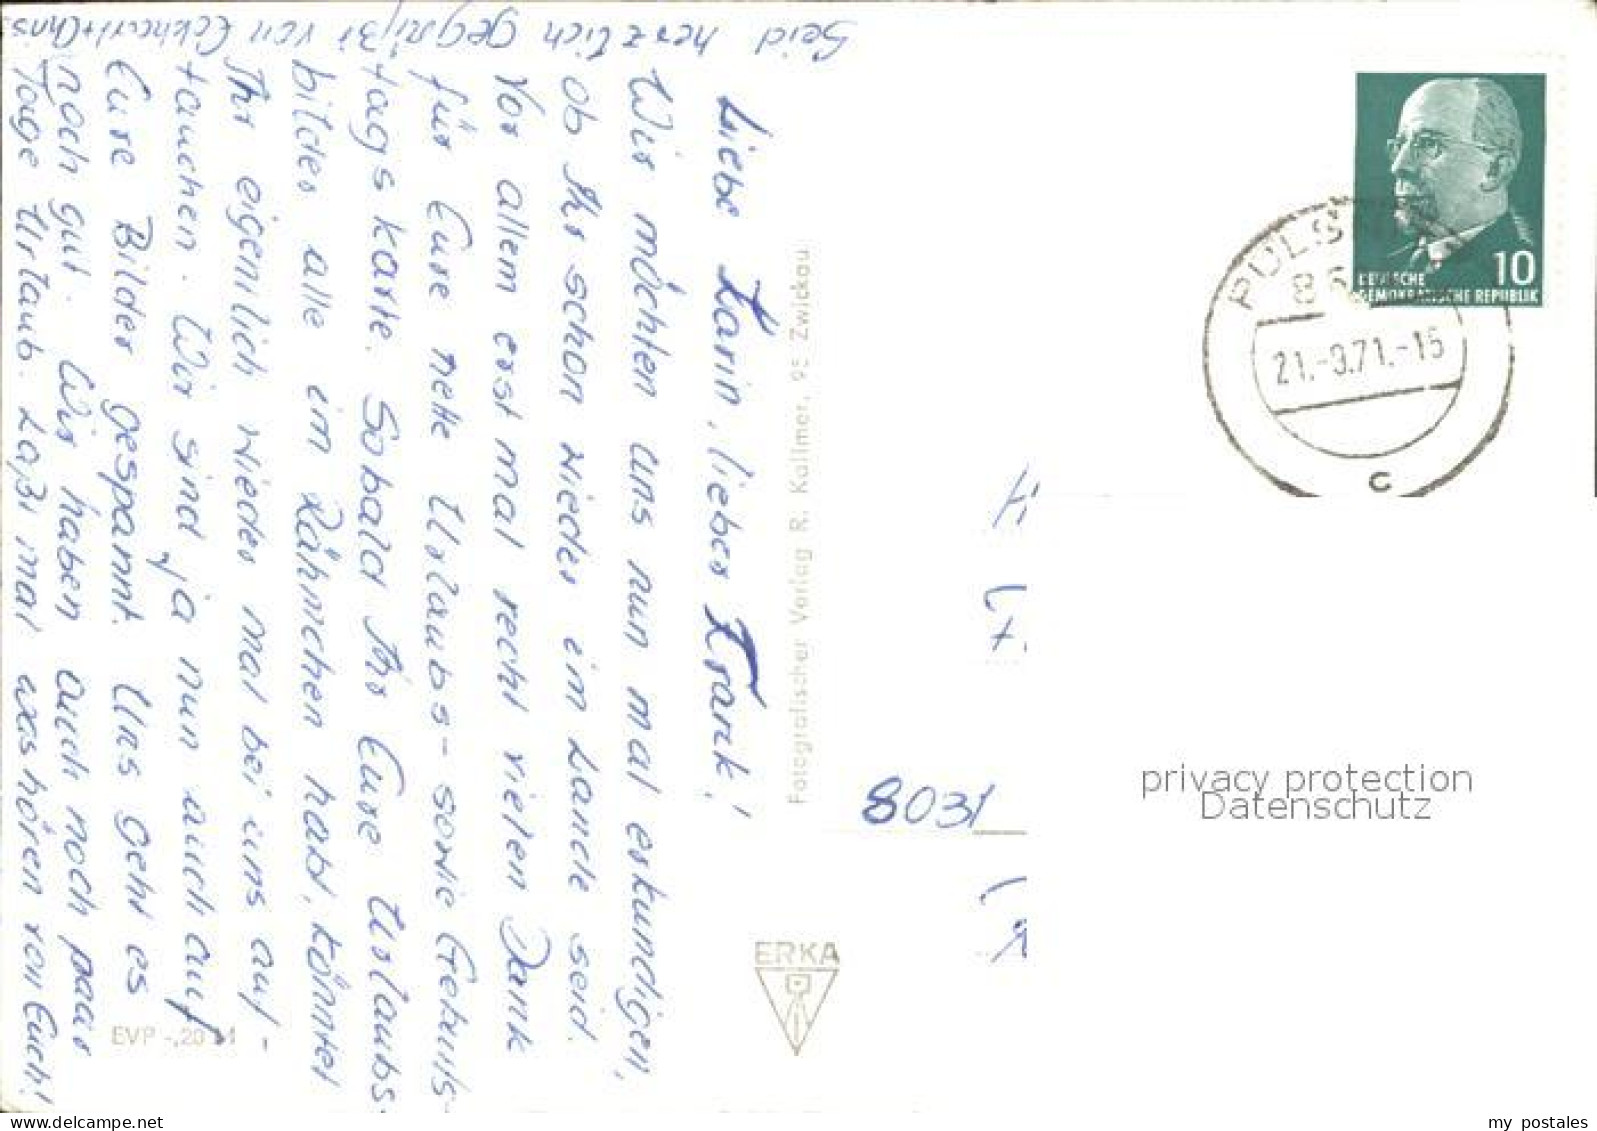 Liebe Karin, lieber Frank!
Wir möchten uns nun mal erkundigen,
ob Ihr schon wieder im Lande seid.
Vor allem erst mal recht vielen Dank
für Eure nette Urlaubs- sowie Geburts-
tagskarte. Sobald Ihr Eure Urlaubs-
bilder alle im Rähmchen habt, könntet
Ihr eigentlich wieder mal bei uns auf-
tauchen. Wir sind ja nun auch auf
Eure Bilder gespannt. Uns geht es
noch gut. Wir haben auch noch paar
Tage Urlaub. Laßt mal was hören von Euch!
Seid herzlich gegrüßt von Eckhart + Chris
Fotografischer Verlag R. Kallmer, 95 Zwickau
ERKA
EVP -,20 M
PULS
85
21.-9.71.-15
c
10
DEUTSCHE
DEMOKRATISCHE REPUBLIK
8031
privacy protection
Datenschutz
www.delcampe.net
my_postales